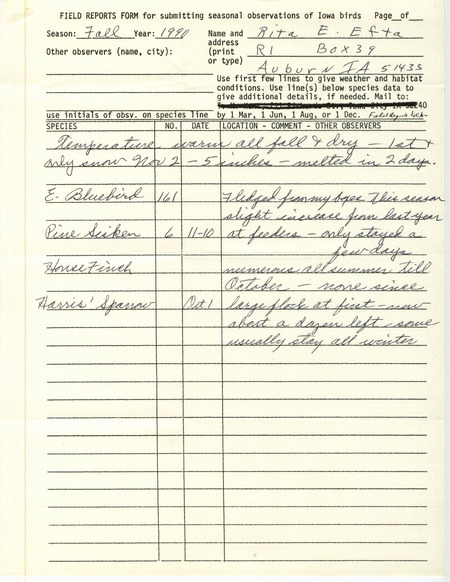 FIELD REPORTS FORM for submitting seasonal observations of Iowa birds Page__of__
Season: Fall Year: 1990 Name and Rita E. Efta
address
Other observers (name, city): (print R1 Box 39
or type)
Auburn IA 51433
Use first few lines to give weather and habitat
conditions. Use line(s) below species data to
give additional details, if needed. Mail to:
52240
use initials of obsv. on species line by 1 Mar, 1 Jun, 1 Aug, or 1 Dec.
SPECIES NO. DATE LOCATION - COMMENT - OTHER OBSERVERS
Temperature warm all fall & dry - 1st &
only snow Nov 2 - 5 inches - melted in 2 days.
E. Bluebird 161 Fledged from my boxes This season
slight increase from last year
Pine Sisken 6 11-10 at feeders - only stayed a
few days
House Finch numerous all summer till
October - none since
Harris' Sparrow Oct 1 large flock at first - now
about a dozen left - some
usually stay all winter